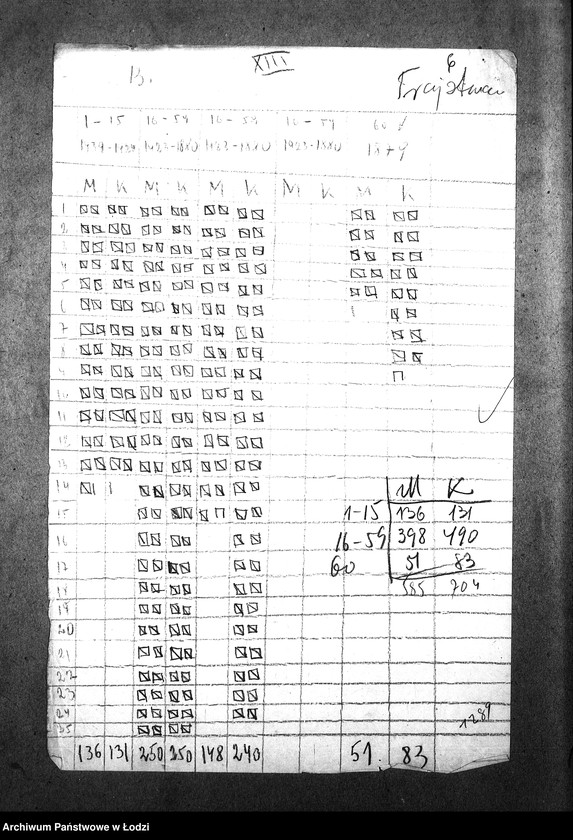 XIII
6
13.
1-15 16-59 16-59 16-59 60
1923-1880 1923-1880 1923-1880
M K M K M K M K M K
1
2
3
4
5
6
7
8
9
10
11
12
13
14
15
16
17
18
19
20
21
22
23
24
25
M K
1-15 136 131
16-59 398 490
60 51 83
585 704
1289
136 131 250 250 148 240 51. 83
Archiwum Państwowe w Łodzi